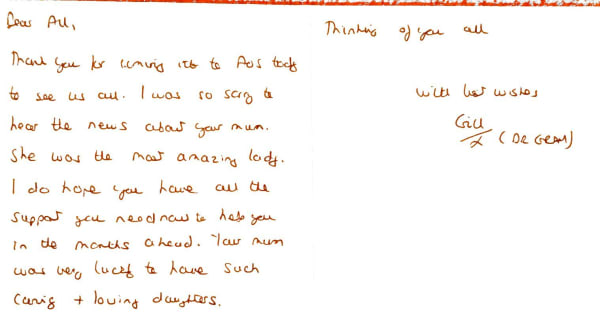 Dear All,
Thank you for coming in to A&S today
to see us all. I was so sorry to
hear the news about your mum.
She was the most amazing lady.
I do hope you have all the
support you need now to help you
in the months ahead. Your mum
was very lucky to have such
caring + loving daughters.
Thinking of you all
with best wishes
Gill
x (DR GRAM)